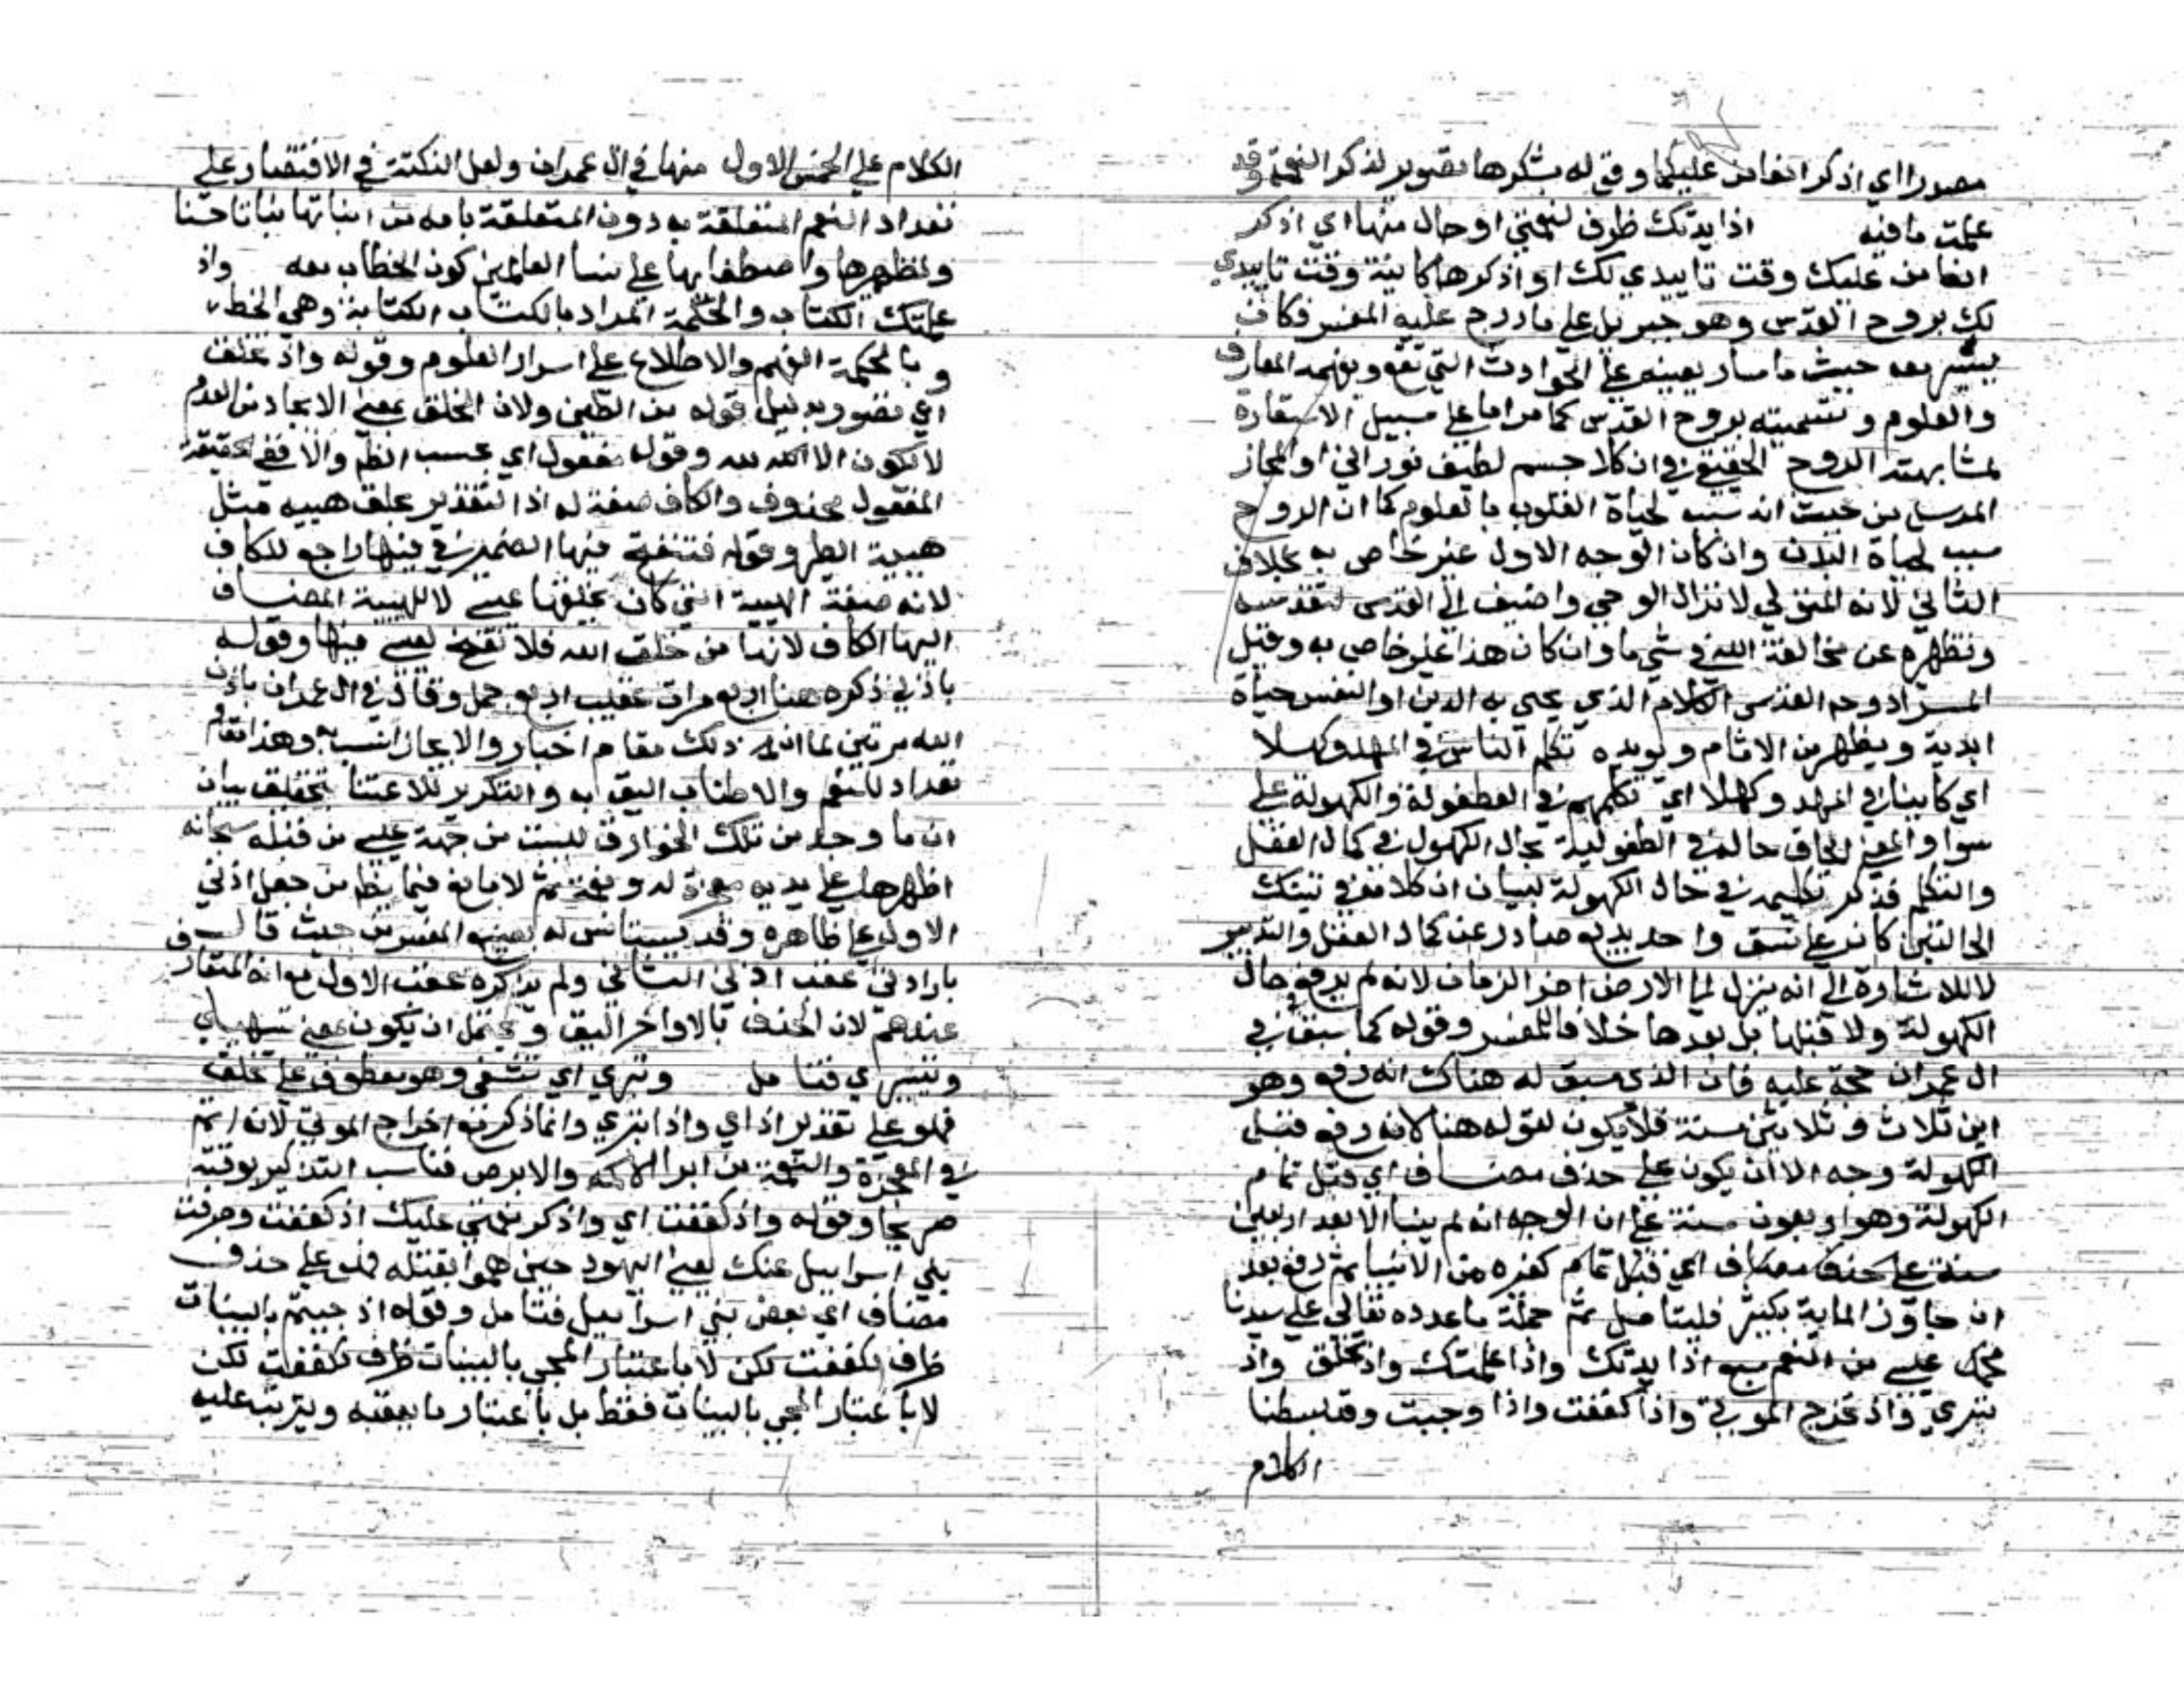 مصدرا اي اذكر انعامي عليكما وقوله بشكرها تصوير لذكر النعمة وقد
علمت ما فيه اذ ايدتك ظرف لنعمتي او حال منها اي اذكر
انعامي عليك وقت تاييدي لك او اذكرها كاينة وقت تاييدي
لك بروح القدس وهو جبريل على ما درج عليه المفسر فكان
يسير معه حيث ما سار يعينه على الحوادث التي تقع ويفهمه المعارف
والعلوم وتسميته بروح القدس كما مر اما على سبيل الاستعارة
لمشابهته الروح الحقيقي في ان كلا جسم لطيف نوراني او المجاز
المرسل من حيث انه سبب لحياة القلوب بالعلوم كما ان الروح
سبب لحياة البدن وان كان الوجه الاول غير خاص به بخلاف
الثاني لانه المتولي لانزال الوحي واضيف الى القدس لتقدسه
وتطهره عن مخالفة الله في شي ما وان كان هذا غير خاص به وقيل
المراد بروح القدس الكلام الذي يحيى به الدين او النفس حياة
ابدية ويطهر من الاثام ويويده تكلم الناس في المهد وكهلا
اي كاينا في المهد وكهلا اي تكلمهم في الطفولة والكهولة على
سوا والمعنى الحاق حاله في الطفولية بحال الكهول في كمال العقل
والتكلم فذكر تكليمه في حال الكهولة لبيان ان كلامه في تينك
الحالتين كان على نسق واحد بديع صادر عن كمال العقل والتدبير
لا للاشارة الى انه ينزل الى الارض اخر الزمان لانه لم يرفع حال
الكهولة ولا قبلها بل بعدها خلافا للمفسر وقوله كما سبق في
ال عمران حجة عليه فان الذي سبق له هناك انه رفع وهو
ابن ثلاث وثلاثين سنة فلا يكون لقوله هنا لانه رفع قبل
الكهولة وجه الا ان يكون على حذف مضاف اي قبل تمام
الكهولة وهو اربعون سنة على ان الوجه انه لم ينبا الا بعد اربعين
سنة على حذف مضاف اي قبل تمام كغيره من الانبيا ثم رفع بعد
ان جاوز الماية بكثير فليتامل ثم جملة ما عدده تعالى على سيدنا
عيسى من النعم سبع اذ ايدتك واذ علمتك واذ تخلق واذ
تبري واذ تخرج الموتى واذ كففت واذ اوحيت وقد بسطنا
الكلام
الكلام على الخمس الاول منها في ال عمران ولعل النكتة في الاقتصار على
تعداد النعم المتعلقة به دون المتعلقة بامه من انباتها نباتا حسنا
وتطهيرها واصطفايها على نسا العالمين كون الخطاب معه واذ
علمتك الكتاب والحكمة المراد بالكتاب الكتابة وهي الخط
وبالحكمة الفهم والاطلاع على اسرار العلوم وقوله واذ تخلق
اي تصور بدليل قوله من الطين ولان الخلق بمعنى الايجاد من العدم
لا يكون الا لله وقوله مفعول اي بحسب الظاهر والا ففي الحقيقة
المفعول محذوف والكاف صفة له اذ التقدير تخلق هيية مثل
هيية الطير وقوله فتنفخ فيها الضمير في فيها راجع للكاف
لانه صفة الهيية التي كان يخلقها عيسى لا للهيية المضاف
اليها الكاف لانها من خلق الله فلا نفخ لعيسى فيها وقوله
باذني ذكره هنا اربع مرات عقيب اربع جمل وقال في ال عمران باذن
الله مرتين لما ان ذلك مقام اخبار والايجاز انسب به وهذا مقام
تعداد للنعم والاطناب اليق به والتكرير للاعتنا بتحقيق بيان
ان ما وجد من تلك الخوارق ليست من جهة عيسى من قبله سبحانه
اظهرها على يديه معجزة له ونعمة ثم لا مانع فيما يظهر من جعل اذني
الاول على ظاهره وقد يستانس له بصنيع المفسر حيث قال في
بارادتي عقب اذني الثاني ولم يذكره عقب الاول مع انه المتعارف
عندهم لان الحذف بالاواخر اليق ويحتمل ان يكون بمعنى تسهيلي
وتيسيري فتامل وتبري اي تشفي وهو معطوف على تخلق
فهو على تقدير اذ اي واذ تبري وانما ذكرت مع اخراج الموتى لانه اتم
في المعجزة والنعمة من ابرا الاكمه والابرص فناسب التذكير بوقته
صريحا وقوله واذ كففت اي واذكر نعمتي عليك اذ كففت وصرفت
بني اسراييل عنك يعني اليهود حين هموا بقتله فهو على حذف
مضاف اي بعض بني اسراييل فتامل وقوله اذ جيتهم بالبينات
ظرف لكففت لكن لا باعتبار المجي بالبينات ظرف لكففت لكن
لا باعتبار المجي بالبينات فقط بل باعتبار ما يعقبه ويترتب عليه